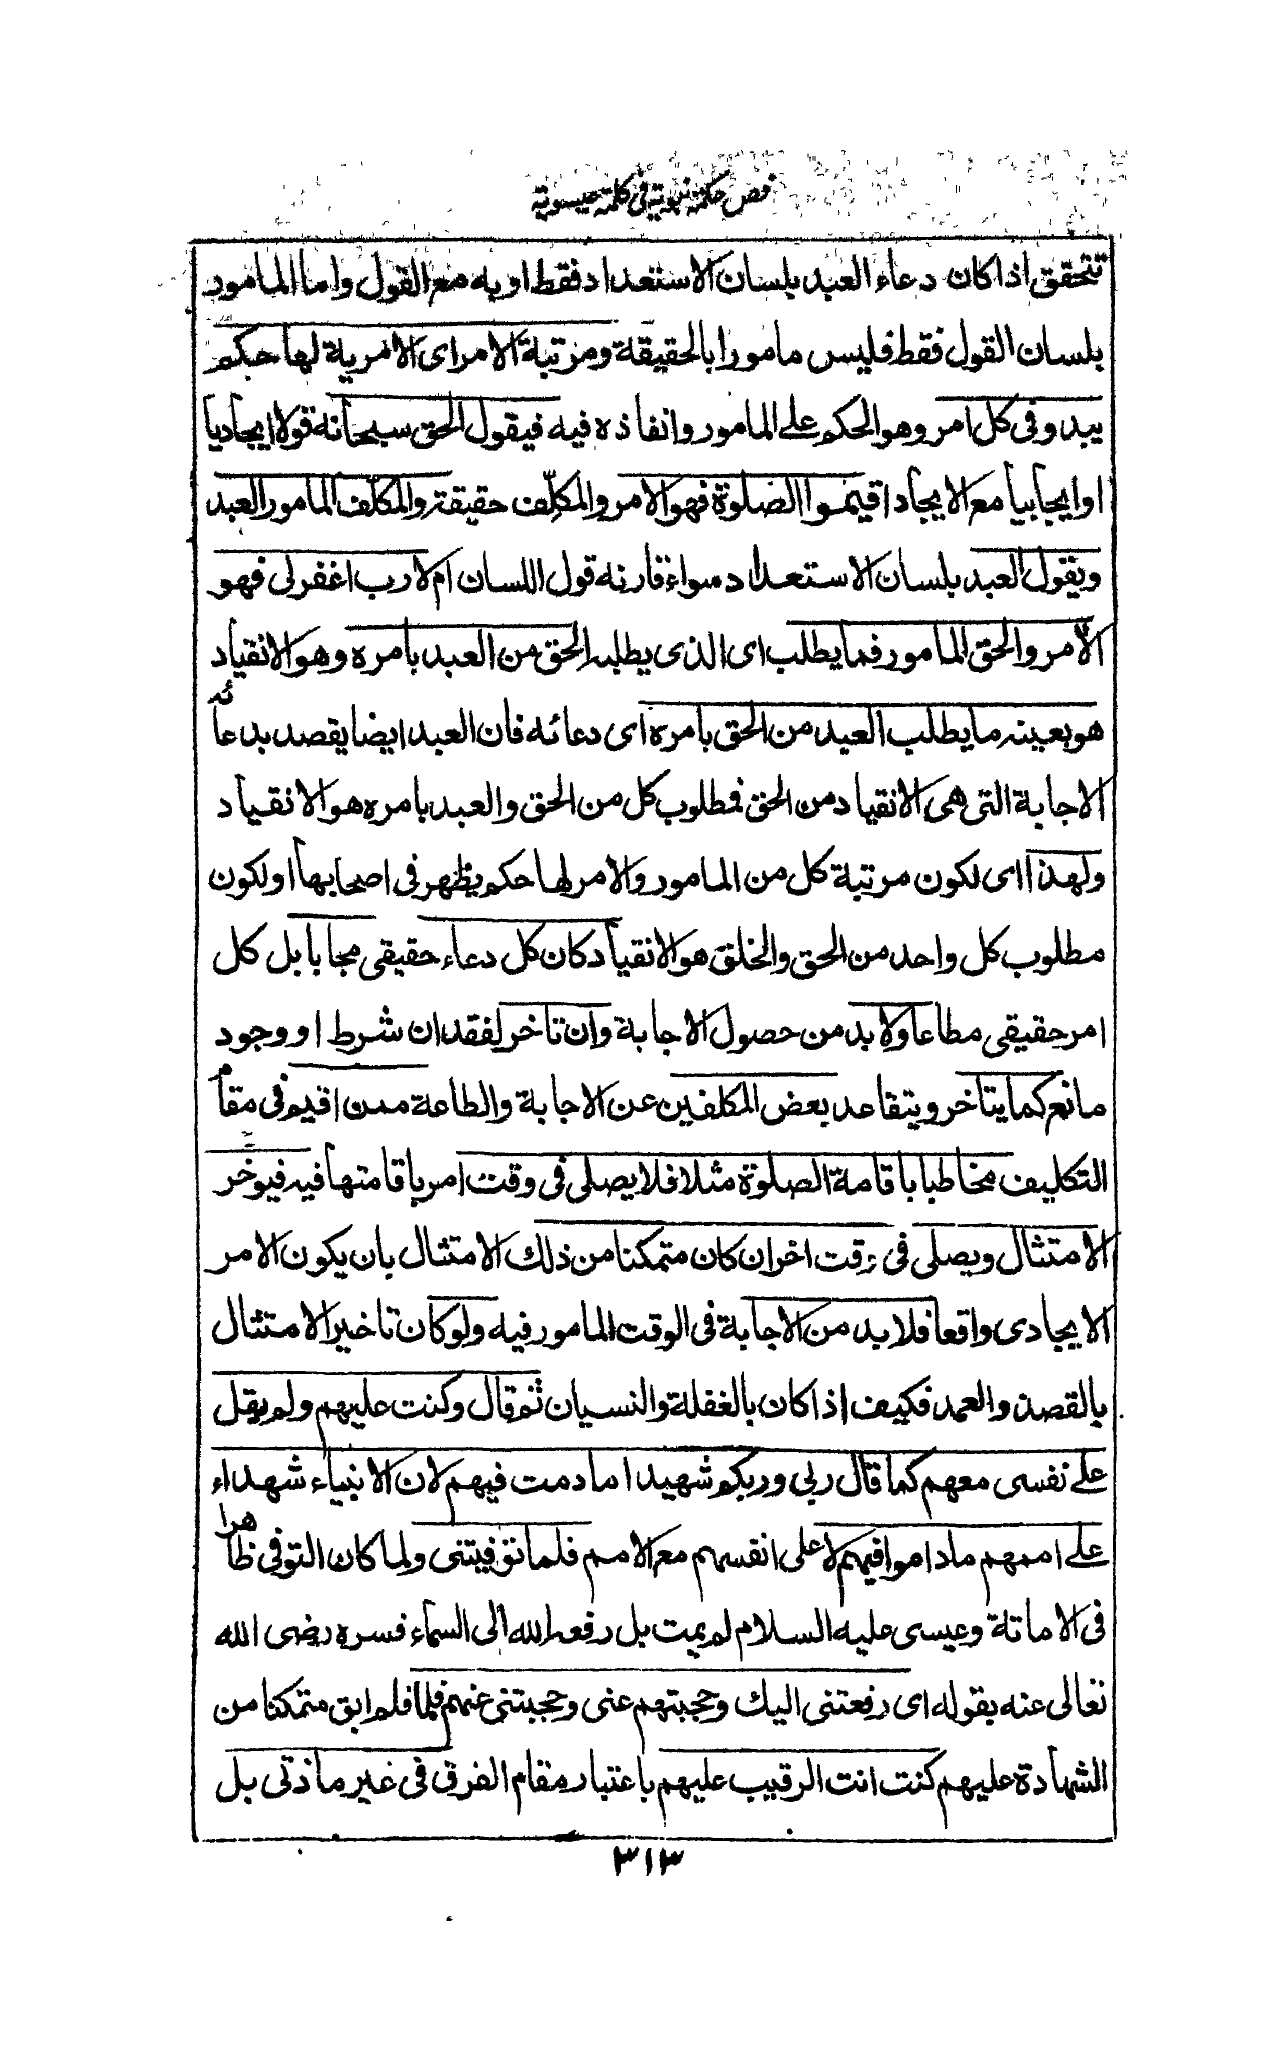 فص حكمة نبوية فى كلمة عيسوية
تتحقق اذا كان دعاء العبد بلسان الاستعداد فقط او به مع القول واما المامور
بلسان القول فقط فليس مامورا بالحقيقة ومرتبة الامر اى الامرية لها حكم
يبدو فى كل امر وهو الحكم على المامور وانفاذه فيه فيقول الحق سبحانه قولا ايجاديا
او ايجابيا مع الايجاد اقيموا الصلوة فهو الامر والمكلِّف حقيقة والمكلَّف المامور العبد
ويقول العبد بلسان الاستعداد سواء قارنه قول اللسان ام لا رب اغفر لى فهو
الآمر والحق المامور فما يطلب اى الذى يطلبه الحق من العبد بامره وهو الانقياد
هو بعينه ما يطلب العبد من الحق بامره اى دعائه فان العبد ايضا يقصد بدعائه
الاجابة التى هى الانقياد من الحق فمطلوب كل من الحق والعبد بامره هو الانقياد
ولهذا اى لكون مرتبة كل من المامور والامر لها حكم يظهر فى اصحابها او لكون
مطلوب كل واحد من الحق والخلق هو الانقياد كان كل دعاء حقيقى مجابا بل كل
امر حقيقى مطاعا ولا بد من حصول الاجابة وان تاخر لفقدان شرط او وجود
مانع كما يتاخر ويتقاعد بعض المكلفين عن الاجابة والطاعة ممن اقيم فى مقام
التكليف مخاطبا باقامة الصلوة مثلا فلا يصلى فى وقت امر باقامتها فيه فيوخر
الامتثال ويصلى فى وقت اخر ان كان متمكنا من ذلك الامتثال بان يكون الامر
الايجادى واقعا فلا بد من الاجابة فى الوقت المامور فيه ولو كان تاخير الامتثال
بالقصد والعمد فكيف اذا كان بالغفلة والنسيان ثم قال وكنت عليهم ولم يقل
على نفسى معهم كما قال ربى وربكم شهيدا ما دمت فيهم لان الانبياء شهداء
على اممهم ما داموا فيهم لا على انفسهم مع الامم فلما توفيتنى ولما كان التوفى ظاهرا
فى الاماتة وعيسى عليه السلام لم يمت بل رفعه الله الى السماء فسره رضى الله
تعالى عنه بقوله اى رفعتنى اليك وحجبتهم عنى وحجبتنى عنهم فلما فلم ابق متمكنا من
الشهادة عليهم كنت انت الرقيب عليهم باعتبار مقام الفرق فى غير مادتى بل
٣١٣